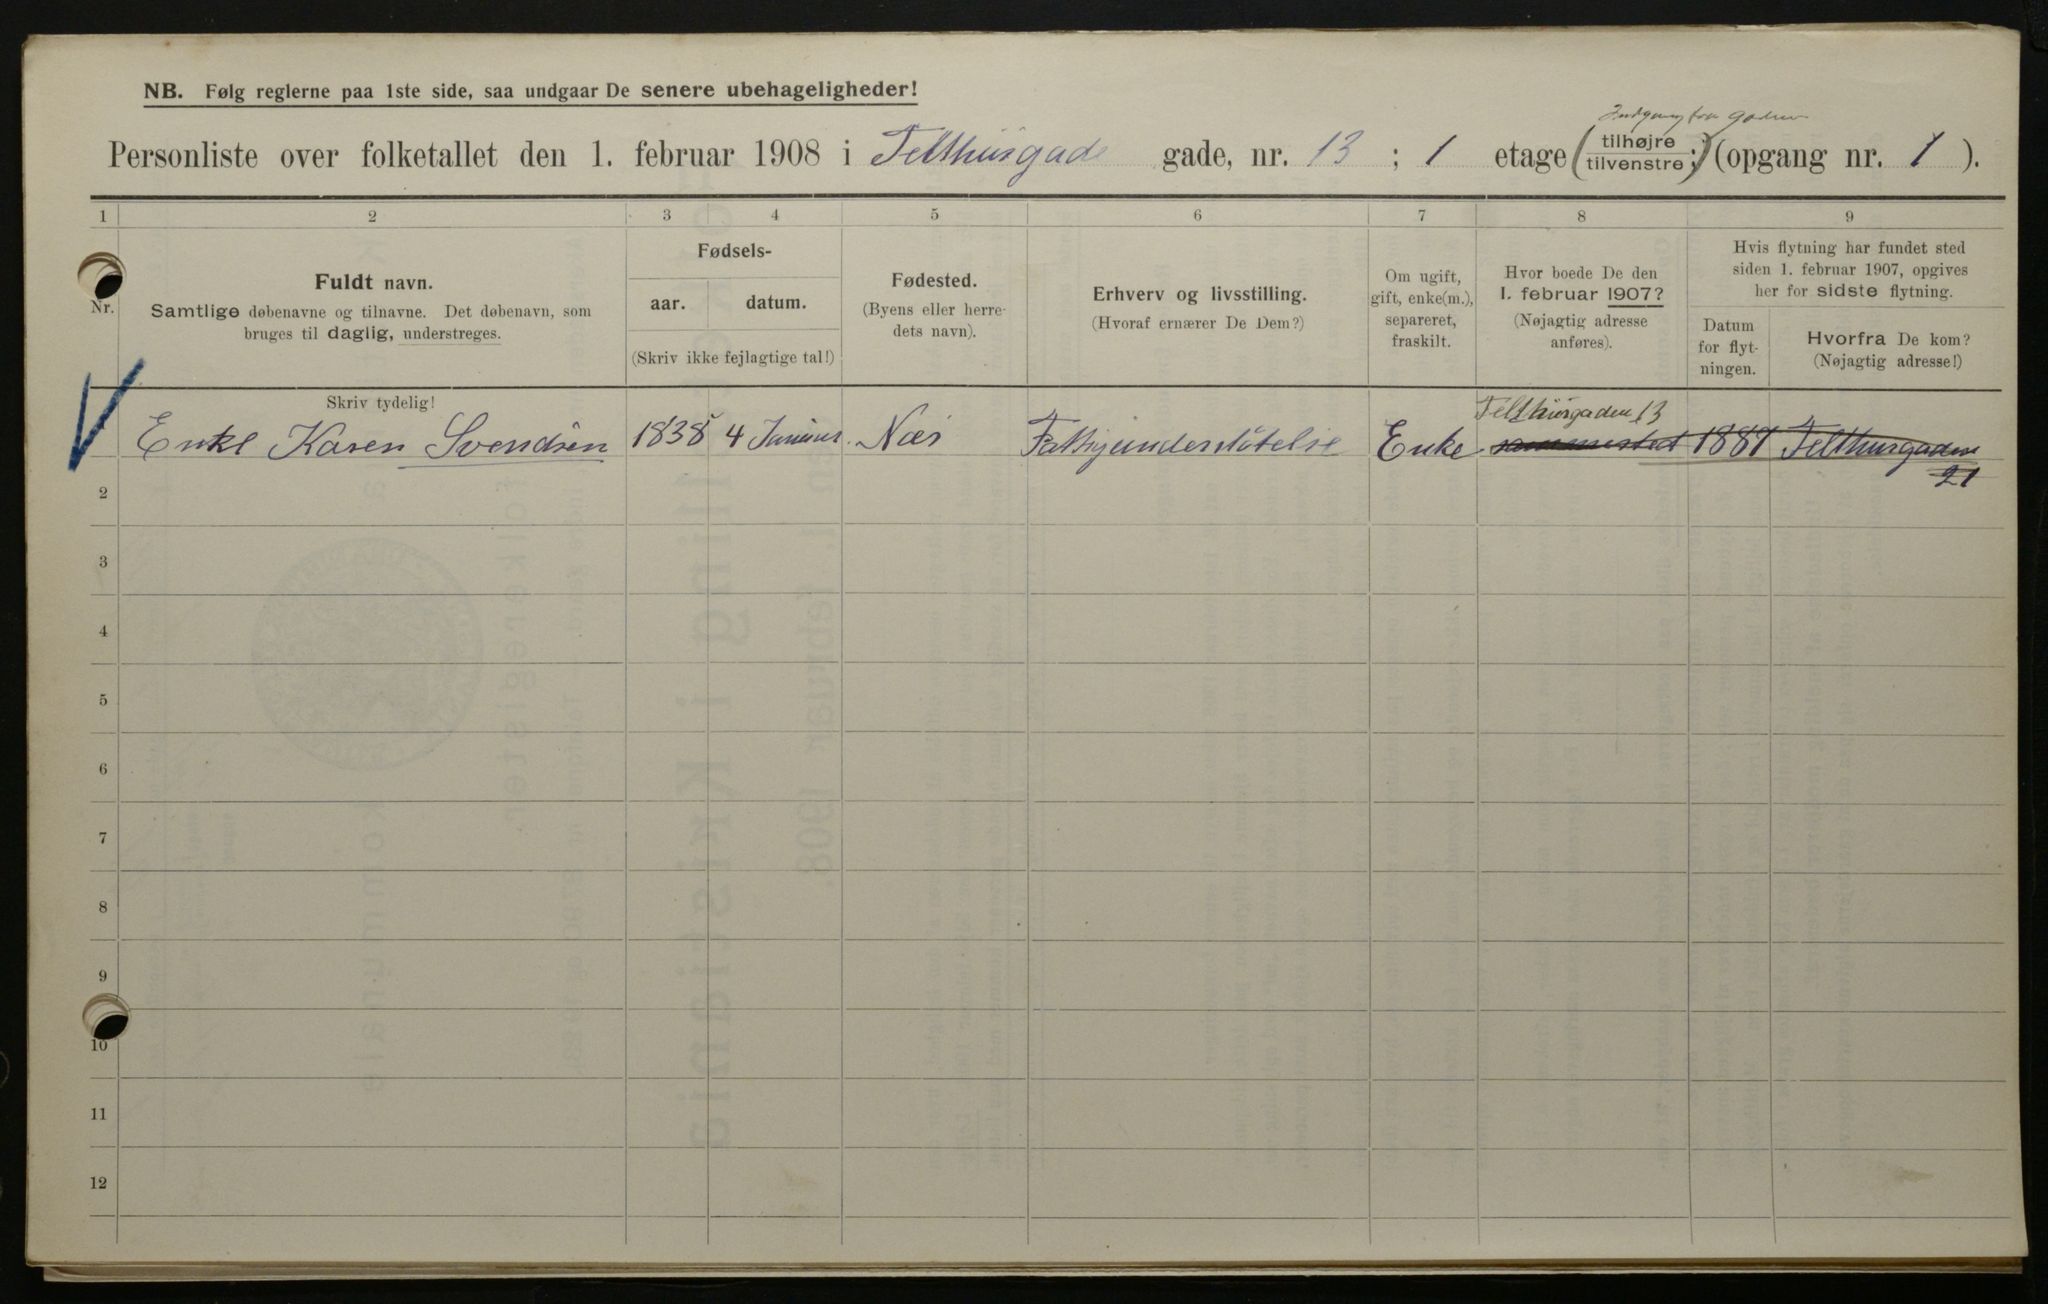 NB. Følg reglerne paa 1ste side, saa undgaar De senere ubehageligheder!
Indgang fra gaden
Personliste over folketallet den 1. februar 1908 i Telthusgade gade, nr. 13 ; 1 etage (tilhøjre tilvenstre;) (opgang nr. 1 ).
1 2 3 4 5 6 7 8 9
Nr.
Fuldt navn.
Samtlige døbenavne og tilnavne. Det døbenavn, som
bruges til daglig, understreges.
Skriv tydelig!
Fødsels-
aar. datum.
(Skriv ikke fejlagtige tal!)
Fødested.
(Byens eller herre-
dets navn).
Erhverv og livsstilling.
(Hvoraf ernærer De Dem?)
Om ugift,
gift, enke(m.),
separeret,
fraskilt.
Hvor boede De den
1. februar 1907?
(Nøjagtig adresse
anføres).
Hvis flytning har fundet sted
siden 1. februar 1907, opgives
her for sidste flytning.
Datum
for flyt-
ningen.
Hvorfra De kom?
(Nøjagtig adresse!)
Telthusgaden 13
Enke Karen Svendsen 1838 4 Januar Næs Fattigunderstøtelse Enke 1887 Telthusgadene
21
2
3
4
5
6
7
8
9
10
11
12